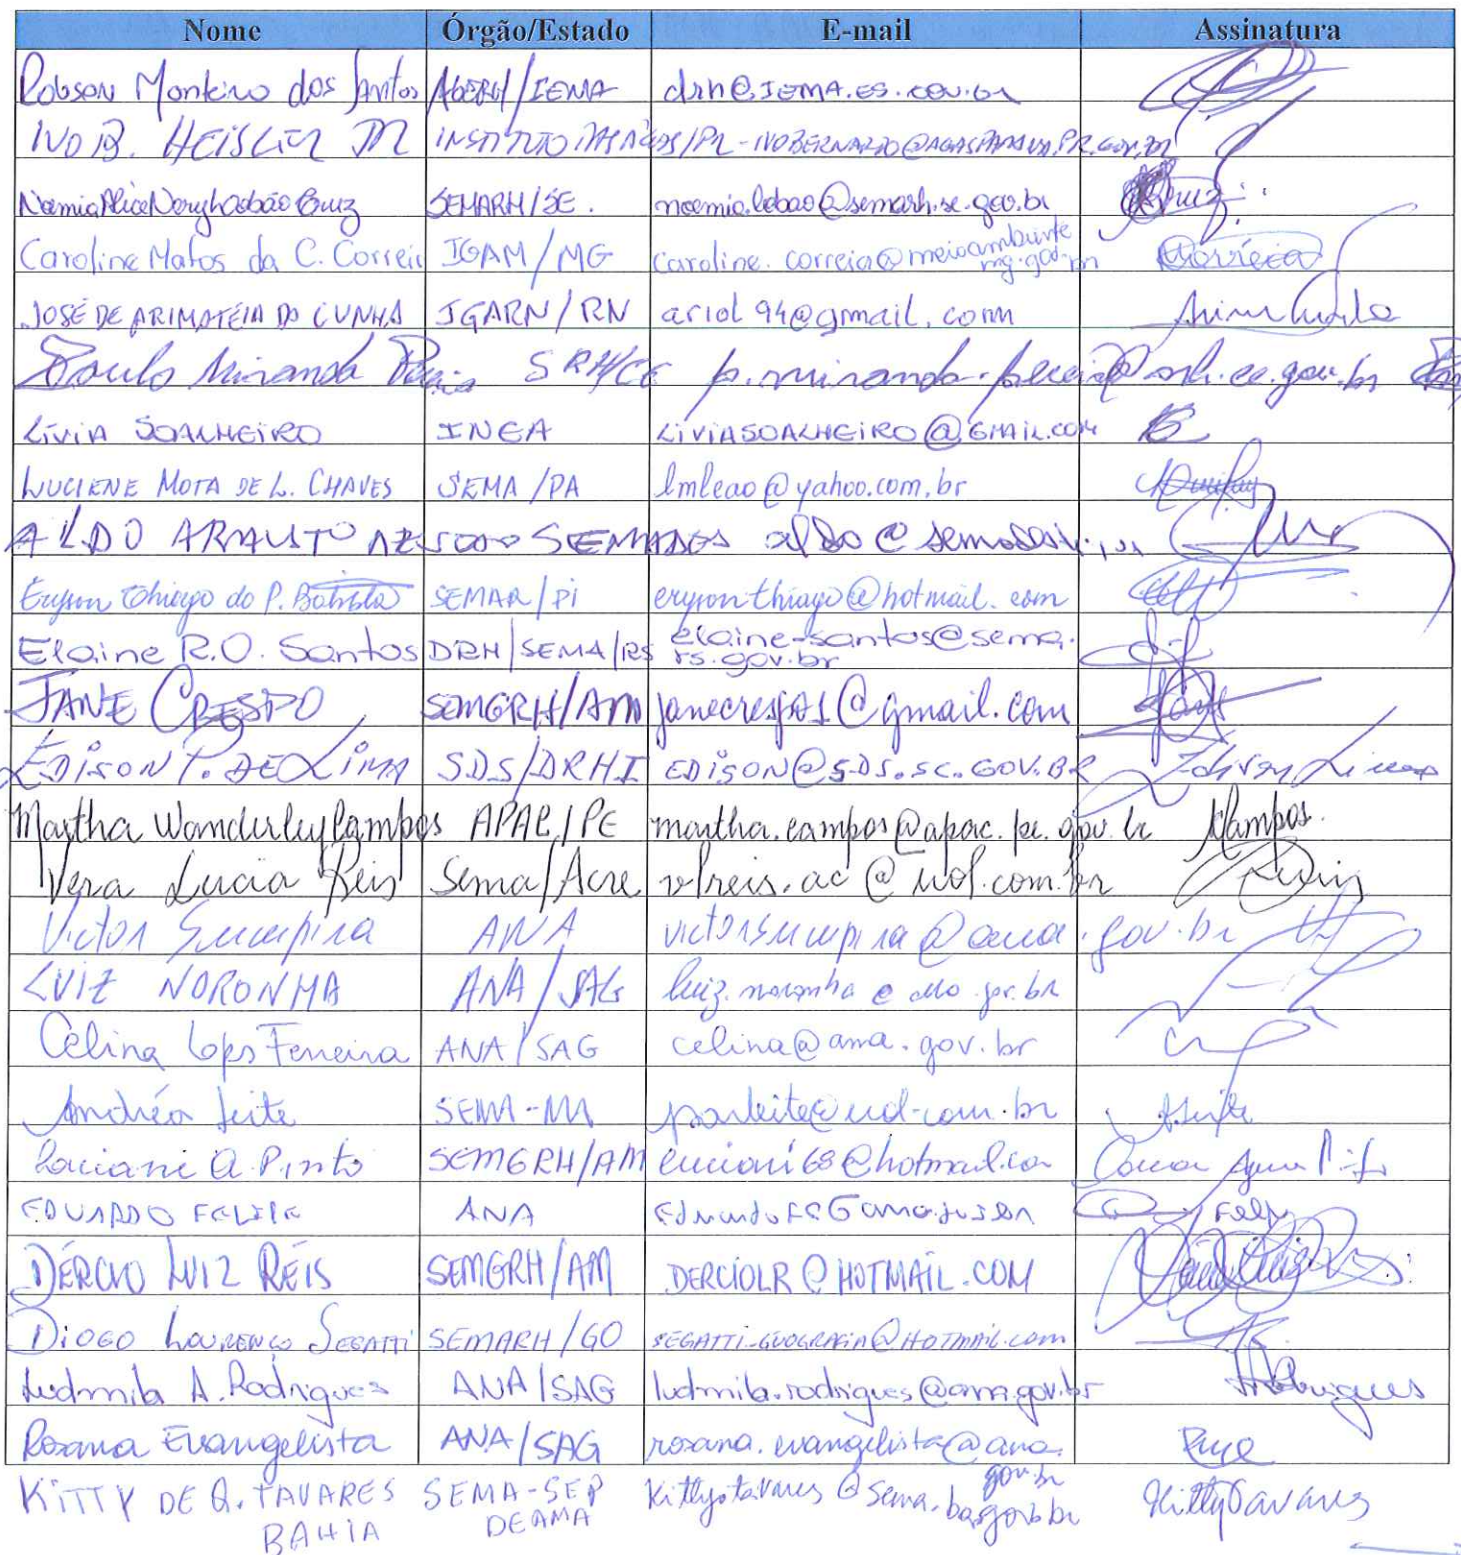 Nome Órgão/Estado E-mail Assinatura
Robson Monteiro dos Santos AGERH/IEMA drh@IEMA.ES.GOV.br
IVO B. HEISLER JR INSTITUTO DAS ÁGUAS/PR - IVOBERNARDO@AGUASPARANA.PR.GOV.BR
Noemia Alice Nery Lobão Cruz SEMARH/SE. noemia.lobao@semarh.se.gov.br Cruz
Caroline Matos da C. Correia IGAM/MG caroline.correia@meioambiente.mg.gov.br Correia
JOSÉ DE ARIMATÉIA DO CUNHA IGARN/RN ariol94@gmail.com
Paulo Miranda Pereira SRH/CE p.miranda.pereira@srh.ce.gov.br
LÍVIA SOALHEIRO INEA LIVIASOALHEIRO@GMAIL.COM
LUCIENE MOTA DE L. CHAVES SEMA/PA lmleao@yahoo.com.br
ALDO ARAUSTO
Eryson Thiago do P. Batista SEMAR/PI erysonthiago@hotmail.com
Elaine R.O. Santos DRH/SEMA/RS elaine-santos@sema.
rs.gov.br
JANE CRESPO SEMGRH/AM janecrespo1@gmail.com
EDISON P. DE LIMA SDS/DRHI EDISON@SDS.SC.GOV.BR Edison Lima
Martha Wanderley Campos APAC/PE martha.campos@apac.pe.gov.br MCampos.
Vera Lucia Reis Sema/Acre vlreis.ac@uol.com.br
Victor Sucupira ANA victorsucupira@ana.gov.br
LUIZ NORONHA ANA/SAG luiz.noronha@ana.gov.br
Celina Lopes Ferreira ANA/SAG celina@ana.gov.br
Andréa Leite SEMA-MA
Luciani A. Pinto SEMGRH/AM luciani68@hotmail.com
EDUARDO FELIPE ANA
DÉRCIO LUIZ REIS SEMGRH/AM DERCIOLR@HOTMAIL.COM
DIOGO LOURENÇO SEGATTI SEMARH/GO SEGATTI-GEOGRAFIA@HOTMAIL.COM
Ludmila A. Rodrigues ANA/SAG ludmila.rodrigues@ana.gov.br Rodrigues
Rosana Evangelista ANA/SAG rosana.evangelista@ana.
gov.br
KITTY DE Q. TAVARES SEMA-SEP kittystavares@sema.ba.gov.br Kitty Tavares
BAHIA DEAMA